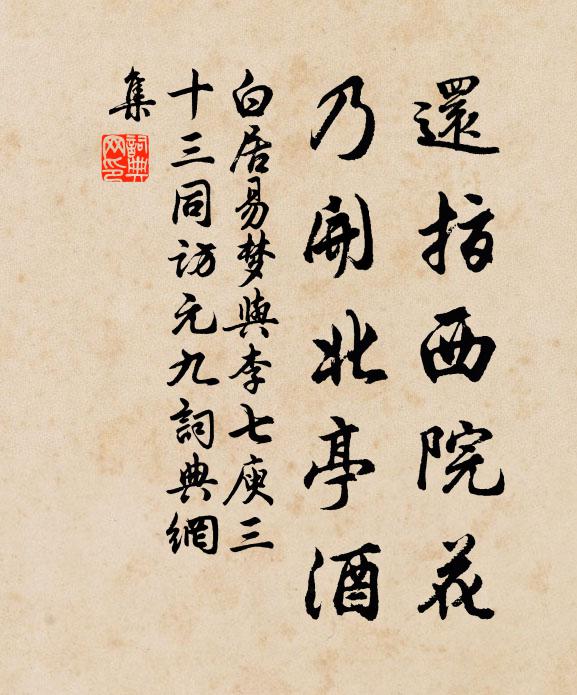 還指西院花
乃開北亭酒
白居易梦與李七庾三
十三同访元九詞典網
集
詞典网印